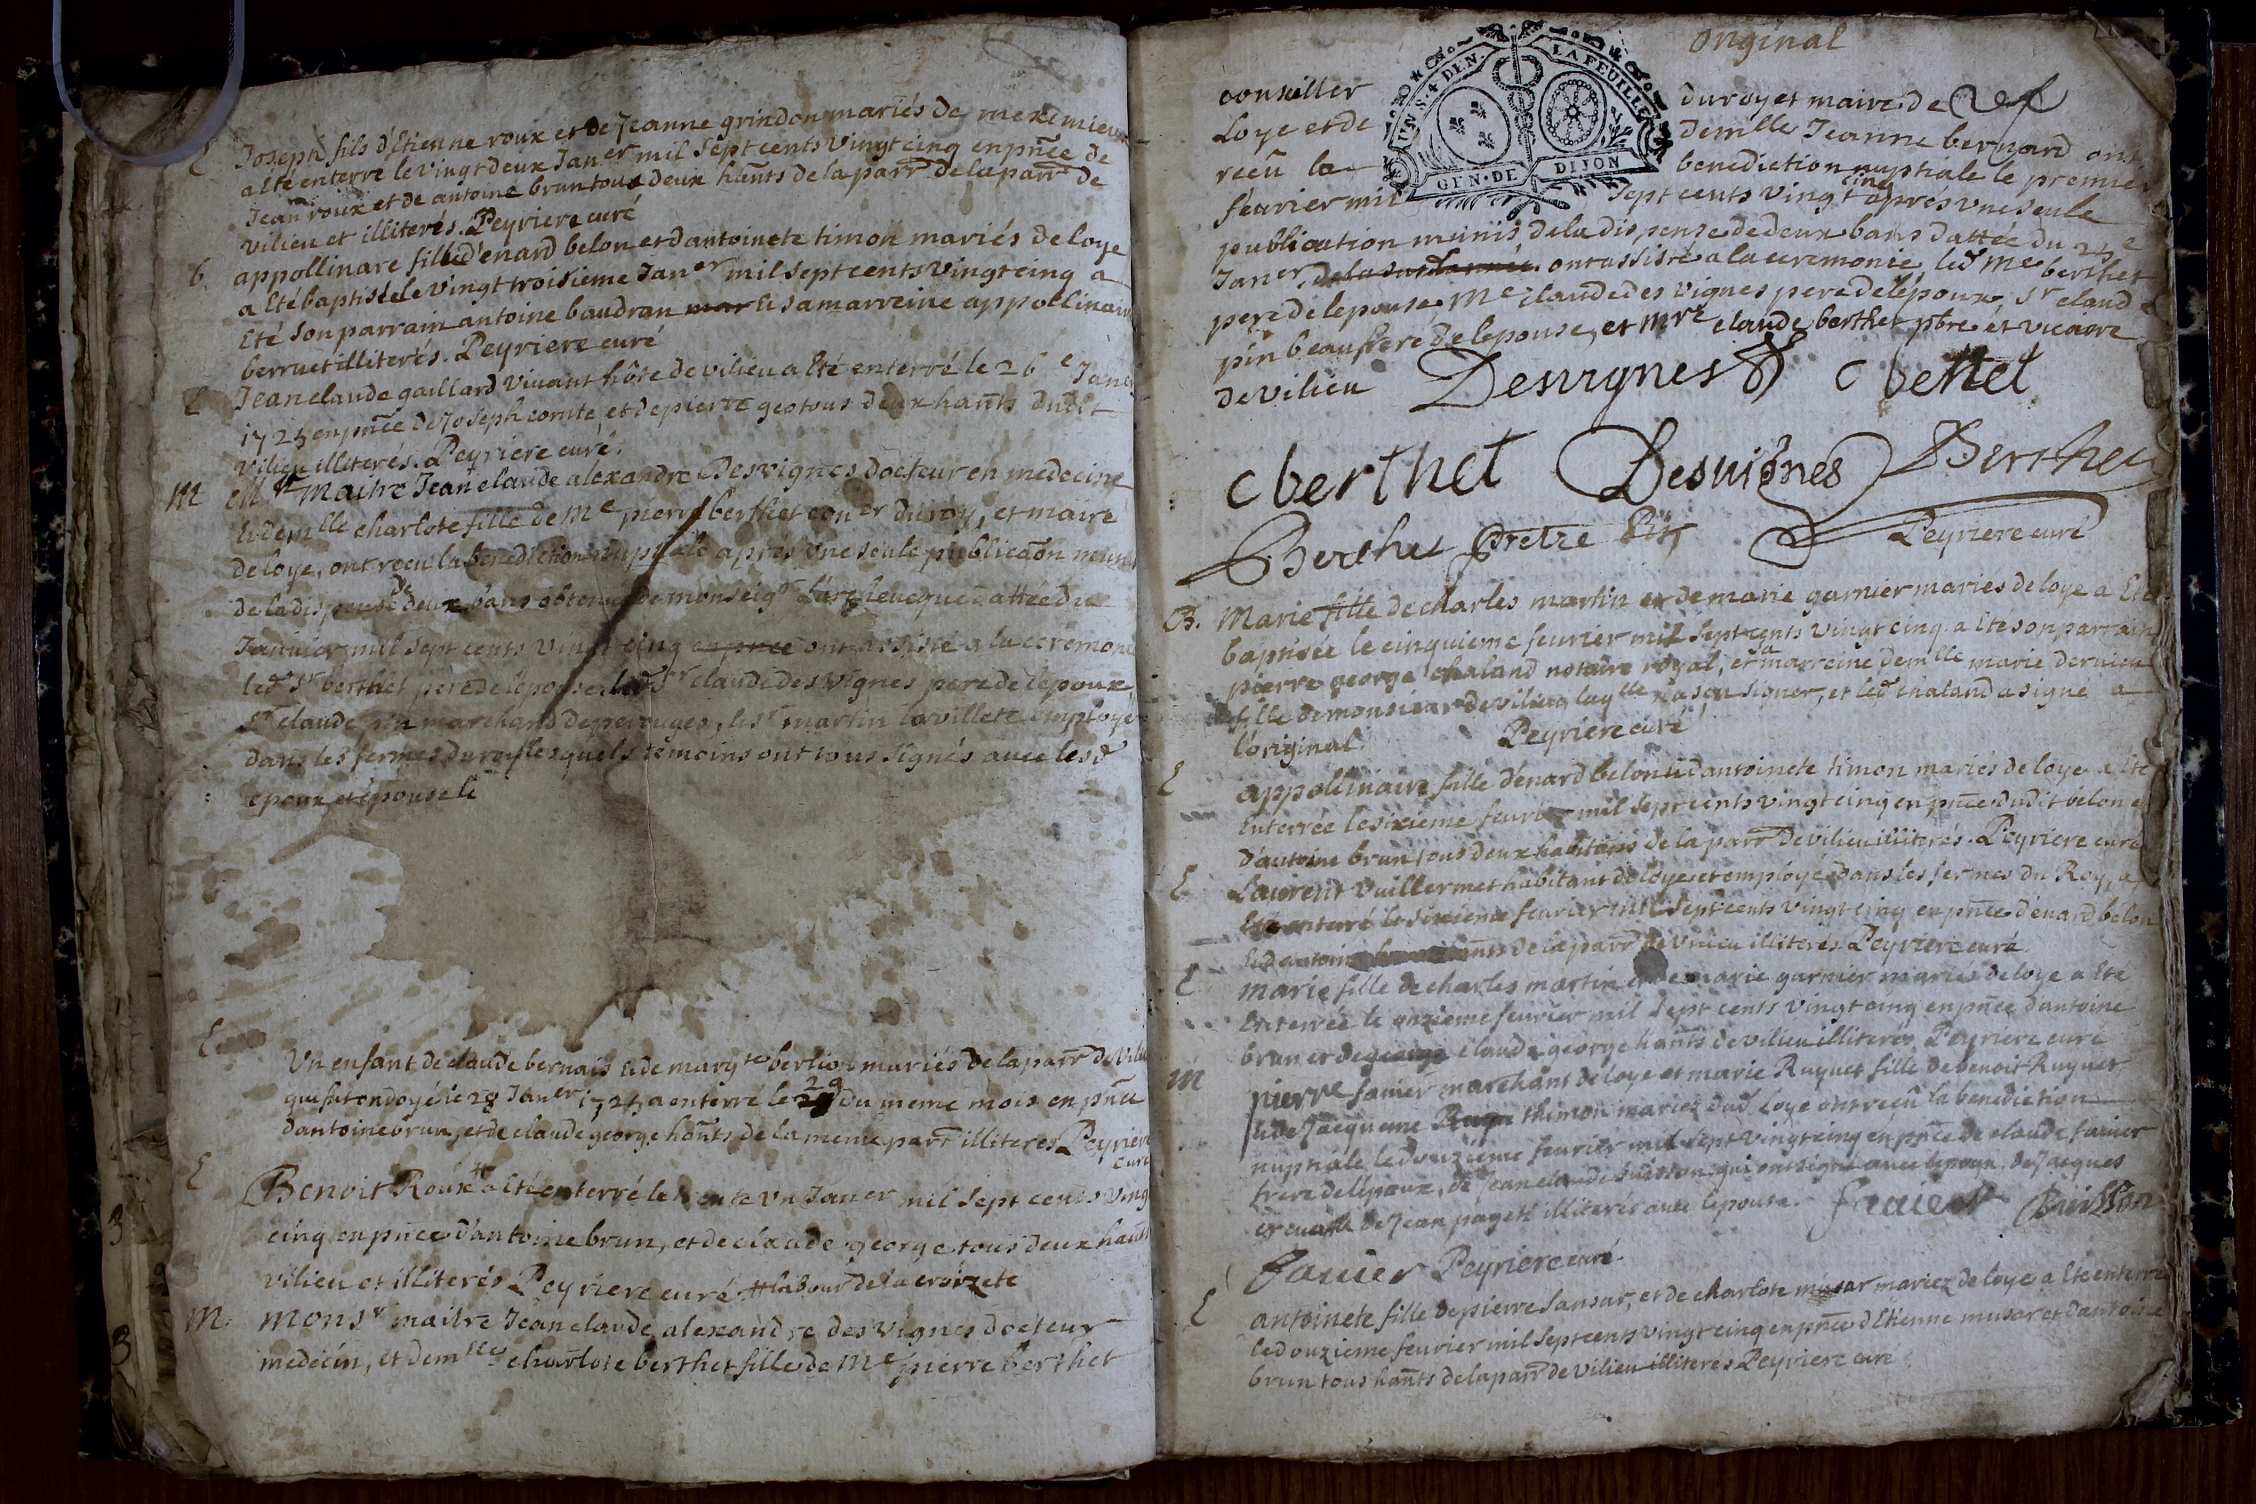 E Joseph fils d'Etienne roux et de Jeanne grindon mariés de meximieux
a Eté enterré le vingt deux Janer mil Sept cents Vingt cinq en pñce de
Jean roux et de antoine brun tous deux hañts de la parr de la parr de
vilieu et illiterés. Peyriere curé
b. appollinare fille d'énard belon et d'antoinete timon mariés de loye
a Eté baptisée le vingt troisieme Janer mil sept cents vingt cinq a
Eté son parrain antoine baudran mar Et sa marreine appollinaire
berruet illiterés. Peyriere curé
E Jean claude gaillard vivant hôte de vilieu a Eté enterré le 26e Janer
1725 en pñce de Joseph comte, et de pierre geo tous deux hañts dudit
vilieu illiterés. Peyriere curé.
M Mr Maitre Jean claude alexandre Desvignes docteur en medecine
Et demlle charlote fille de Me pierre berthet coner du roy, et maire
de loye, ont reçu la benediction nuptiale aprés une seule publicaõn munis
de la dispense de deux bans obtenue de monseigr L'archeveque dattée du
Janvier mil sept cents vingt cinq en pñce ont assisté a la ceremonie
led Sr berthet pere de l'épouse led Sr claude des vignes pere de l'époux,
Sr claude pin marchand de perouges, le Sr martin lavillete employé
dans les fermes du roy lesquels temoins ont tous signés avec lesd
epoux et épouse le
E Un enfant de claude bernais Et de margte berlion mariés de la parr de vilieu
qui fut ondoyé le 28 Janer 1725 a enterré le 29 du meme mois en pñce
d'antoine brun, et de claude george hañts de la meme parr illiterés Peyriere
curé
E Benoit Roux # a Eté enterré le trente Un Janer mil Sept cents Vingt
cinq en pñce d'antoine brun, et de claude george tous deux hañts
vilieu et illiterés Peyriere curé # labour de la croizete
M. Monsr maitre Jean claude alexandre des vignes docteur
medecin, et demlle charlote berthet fille de Me pierre berthet
original
UN S. 4 DEN. LA FEUILLE
GEN. DE DIJON
conseiller du roy et maire de
Loye et de demlle Jeanne bernard ont
reçû la benediction nuptiale le premier
février mil sept cents vingt cinq aprés une seule
publication munis de la dispense de deux bans dattée du 25e
Janer, ont assisté a la ceremonie, led Me berthet
pere de l'epouse, Me claude des vignes pere de l'époux, Sr claude
pin beaufrere de l'epouse, et Mre claude berthet pbre et vicaire
de vilieu Desvignes C berthet
C berthet Desvignes Berthet
Berthet prêtre Pin Peyriere curé
B. Marie fille de charles martin et de marie garnier mariés de loye a Eté
baptisée le cinquieme fevrier mil Sept cents Vingt cinq. a Eté son parrain
pierre george chaland notaire royal, et sa marreine demlle marie de
fille de monsieur de vilieu laqlle n'a sçu signer, et led chaland a signé a
l'original. Peyriere curé
E appollinaire fille d'énard belon Et d'antoinete timon mariés de loye a Eté
Enterrée le sixieme fevrier mil sept cents vingt cinq en pñce dudit belon et
d'antoine brun tous deux habitans de la parr de vilieu illiterés. Peyriere curé
E Laurent Vuillermet habitant de loye et employé dans les fermes du Roy, a
Eté enterré le sixieme fevrier mil Sept cents vingt cinq en pñce d'énard belon
Et d'antoine hañts de la parr de vilieu illiterés. Peyriere curé
E Marie fille de charles martin et de marie garnier mariés de loye a Eté
Enterrée le onzieme fevrier mil Sept cents vingt cinq en pñce d'antoine
brun et de claude george hañts de vilieu illiterés, Peyriere curé
M pierre favier marchant de loye et marie Ruquet fille de benoit Ruquet
Et de Jacqueme thimon mariez dud Loye ont reçû la benediction
nuptiale le douzieme fevrier mil sept vingt cinq en pñce de claude favier
frere de l'époux, de Jean claude buisson qui ont signé avec l'epoux, de Jacques
et de Jean paget illiterés avec l'epouse. favier Buisson
favier Peyriere curé.
E antoinete fille de pierre Sansar, et de charlote musar mariez de loye a Eté enterrée
le douzieme fevrier mil Sept cents vingt cinq en pñce d'Etienne musar et d'antoine
brun tous hañts de la parr de vilieu illiterés Peyriere curé